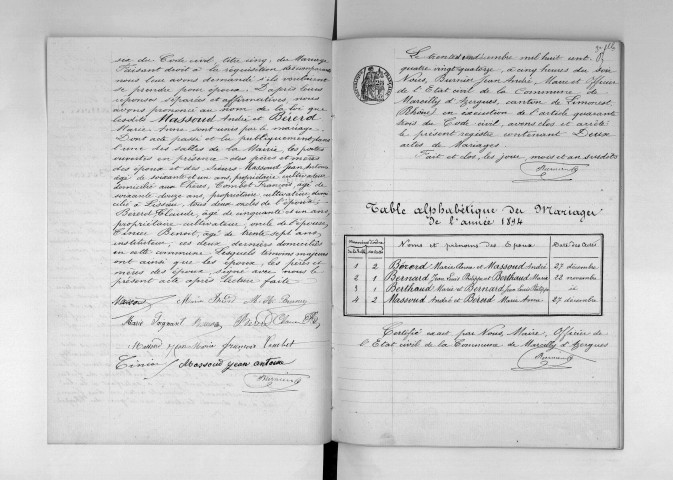 six du Code civil, titre cinq, du Mariage
Faisant droit à la réquisition des comparants
nous leur avons demandé s'ils voulaient
se prendre pour époux. D'après leurs
réponses séparées et affirmatives, nous
avons prononcé au nom de la loi que
lesdits Massoud André et Bérerd
Marie Anne sont unis par le mariage.
Dont acte passé et lu publiquement dans
l'une des salles de la Mairie, les portes
ouvertes en présence des pères et mères
des époux et des Sieurs Massoud Jean Antoine
âgé de soixante et un ans, propriétaire cultivateur
domicilié aux Chères, Combet François, âgé de
soixante douze ans, propriétaire cultivateur, domi
cilié à Lissieu, tous deux oncles de l'époux;
Bererd Claude, âgé de cinquante et un ans,
propriétaire cultivateur, oncle de l'épouse,
Benoit, âgé de trente sept ans,
instituteur; ces deux derniers domiciliés
en cette commune. Lesquels témoins majeurs
ont ainsi que les époux, les pères et
mères des époux, signé avec nous le
présent acte après lecture faite
Marie
Claude
françois Combet
Massoud jean antoine
Le trente et un décembre mil huit cent
quatre vingt quatorze, à cinq heures du soir
Nous, Jean André, Maire et Officier
de l'Etat civil de la Commune de
Marcilly d'Azergues, canton de Limonest
(Rhône) en exécution de l'article quarante
trois du Code civil, avons clos et arrêté
le présent registre contenant Deux
actes de Mariages.
Fait et clos, les jour, mois et an susdits
Table alphabétique des Mariages
de l'année 1894
Noms et prénoms des Epoux Date des Actes
1 2 Bérerd Marie Anne et Massoud André 27 décembre
2 1 Bernard Jean Louis Philippe et Berthaud Marie 22 novembre
3 1 Berthaud Marie et Bernard Jean Louis Philippe id
4 2 Massoud André et Bérerd Marie Anne 27 décembre
Certifié exact par Nous, Maire, Officier de
l'Etat civil de la Commune de Marcilly d'Azergues